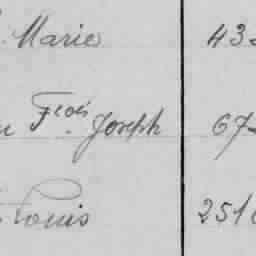 Marie 43
Fcois Joseph 67
Louis 251